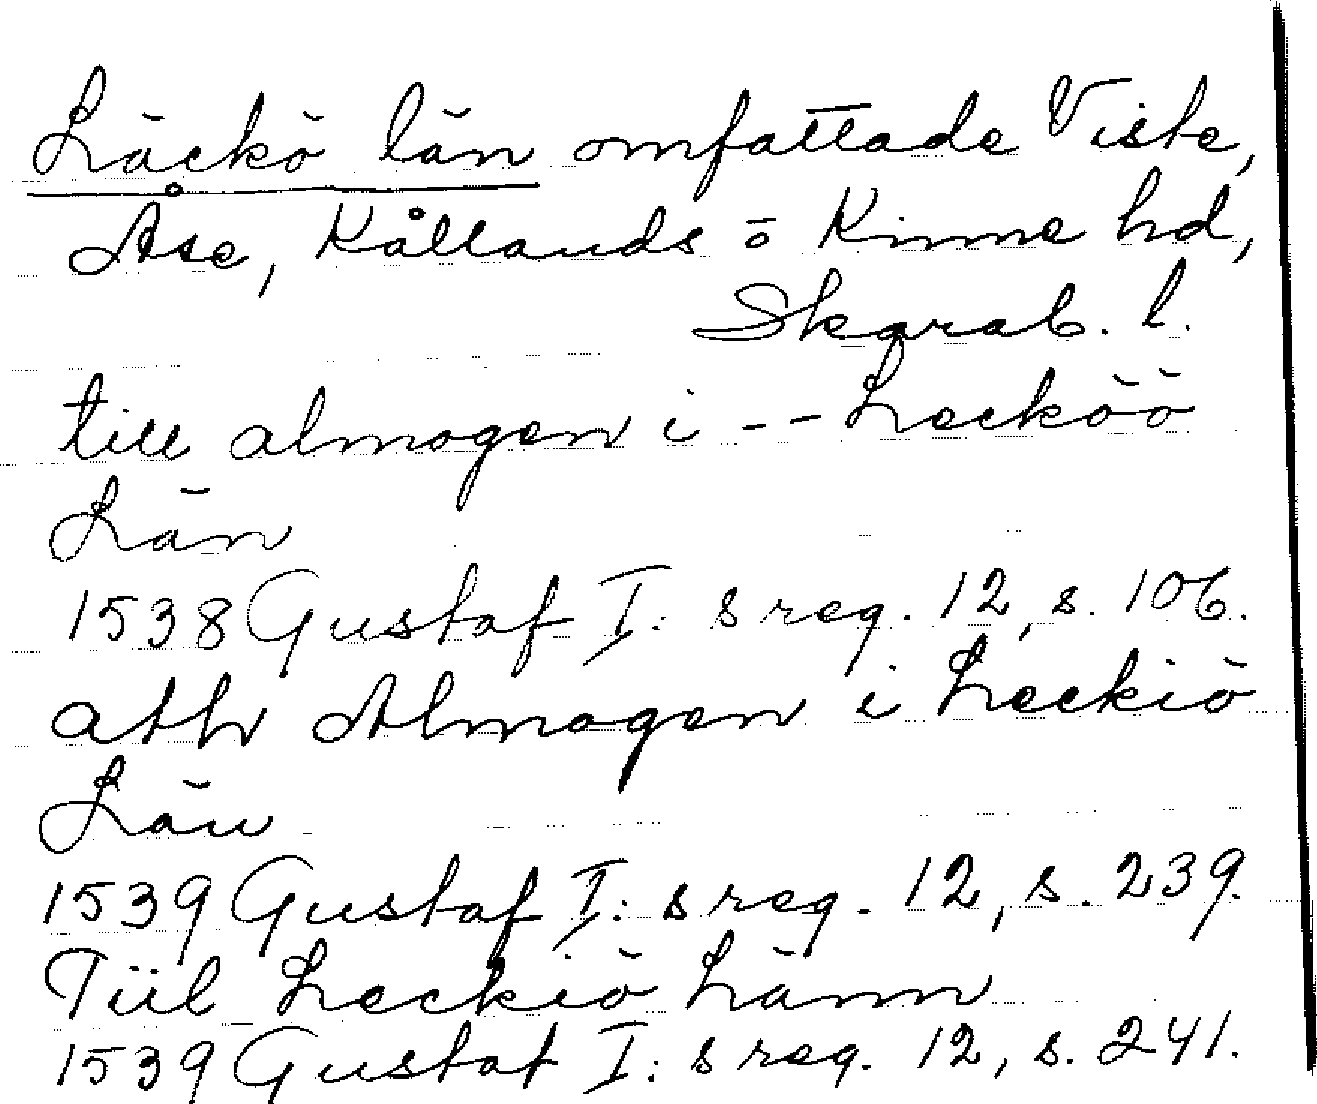 Läckö län omfattade Viste,
Åse, Kållands o Kinne hd,
Skarab. l.
till almogen i -- Lecköö
Län
1538 Gustaf I:s reg. 12, s. 106.
ath Almogen i Leckiö
Län
1539 Gustaf I:s reg. 12, s. 239.
Tiil Leckiö Länn
1539 Gustaf I:s reg. 12, s. 241.